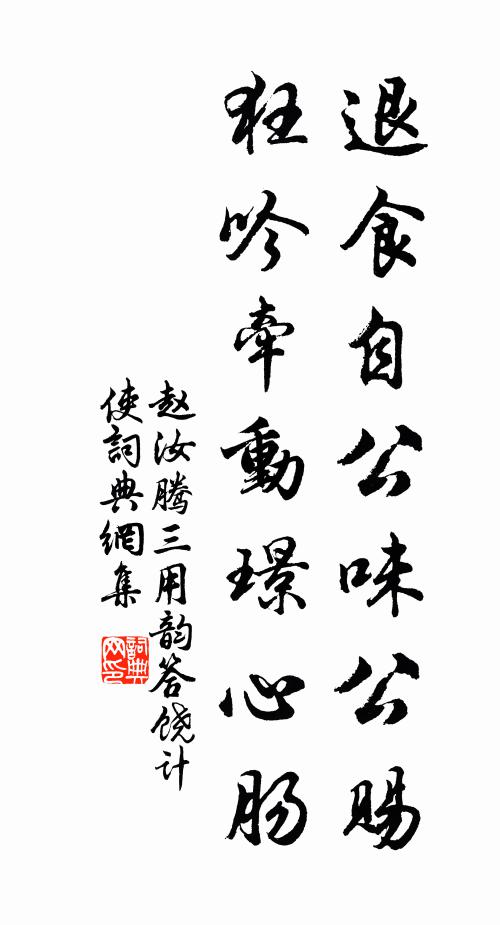 退食自公味公賜
狂吟牽動璟心腸
赵汝腾三用韵答饶计
使詞典網集
詞典
网印